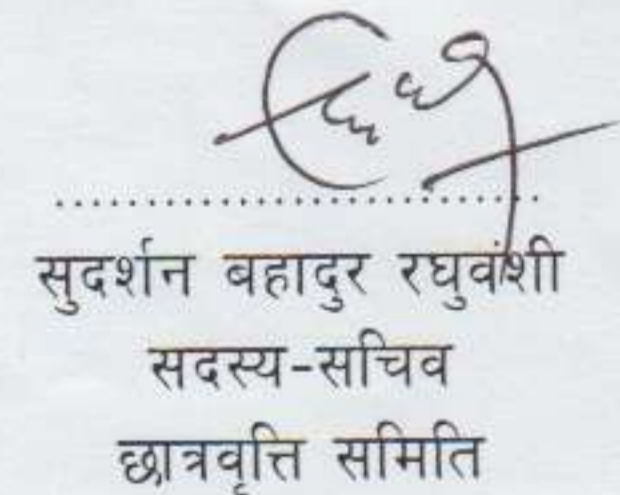 ........................................
सुदर्शन बहादुर रघुवंशी
सदस्य-सचिव
छात्रवृत्ति समिति